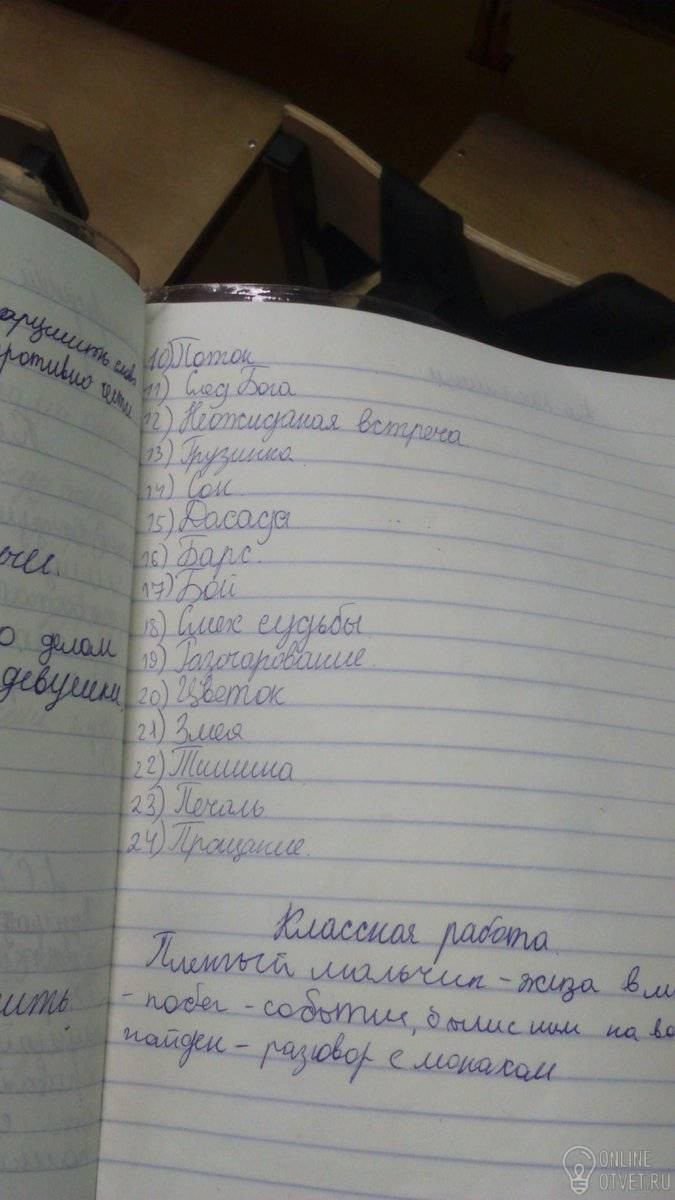 нарушить слово
противно чести
10) Поток
11) След Бога
12) Неожиданая встреча
13) Грузинка
14) Сон
15) Дасада
16) Барс.
17) Бой
18) Смех судьбы
19) Разочарование.
20) Цветок
21) Змея
22) Тишина
23) Печаль
24) Прощание.
делом
девушки,
Классная работа.
Пленный мальчик - в
- побег - события, на
найден - разговор с монахом
ONLINE
OTVET.RU